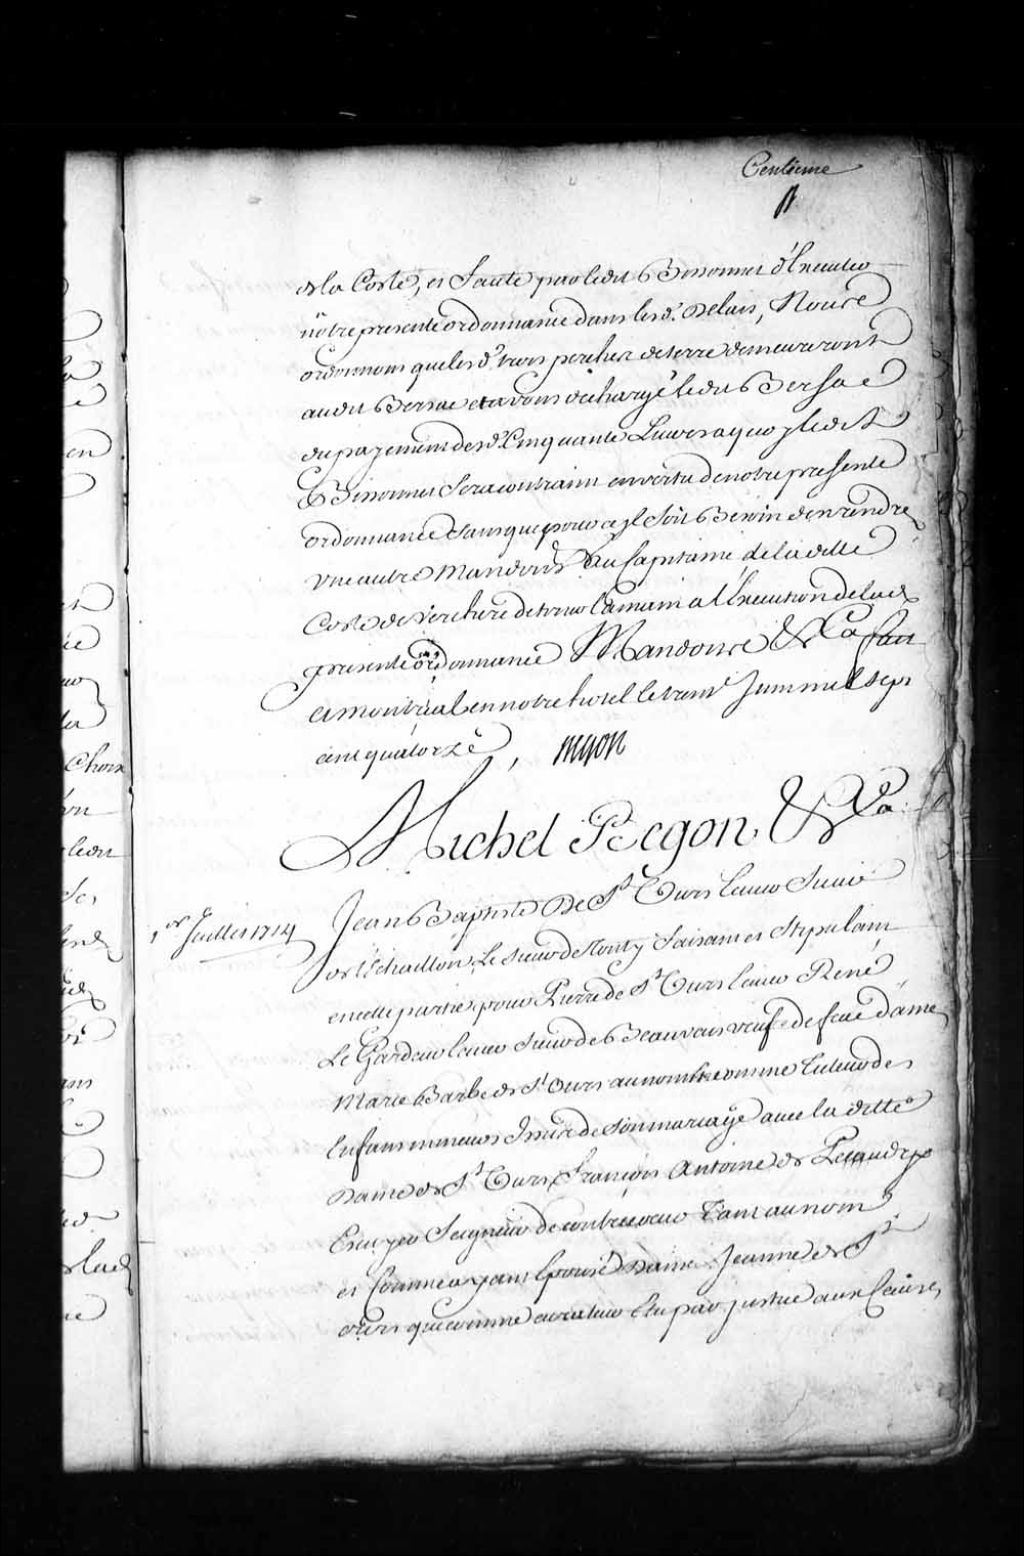 Centieme
B
de la Coste, et faute par ledit Bissonnet d'Executer
nôtre presente ordonnance dans lesd. delais, Nous
ordonnons que lesd. trois perches de terre demeureront
audit Bersac et avons dechargé ledit Bersac
du payement desd. Cinquante Livres a quoy ledit
Bissonnet sera contraint en vertu de notre presente
ordonnance sans que pour ce jl soit Besoin d'en rendre
vne autre Mandons au Capitaine de la ditte
Coste de Vercheres de tenir la main a l'Execution de la
presente ordonnance Mandons &Ca fait
a montréal en notre hotel le trente Juin mil sept
cent quatorze, Begon
Michel Begon, &Ca.
1er Juillet 1714
Jean Baptiste De St Ours Ecuier Sieur
de l'Echaillon, Le sieur de Monty faisant et stipulant
en cette partie pour Pierre de St Ours Ecuier René
Le Gardeur Ecuier Sieur de Beauvais veuf de feüe dame
Marie Barbe de St Ours au nom et comme Tuteur des
Enfans mineurs Issus de son mariage avec la ditte
Dame de St Ours François Antoine de Pecaudy
Ecuyer Seigneur de contrecoeur Tant au nom
et comme ayant Epousé Dame Jeanne de St
ours que comme curateur Elu par justice aux